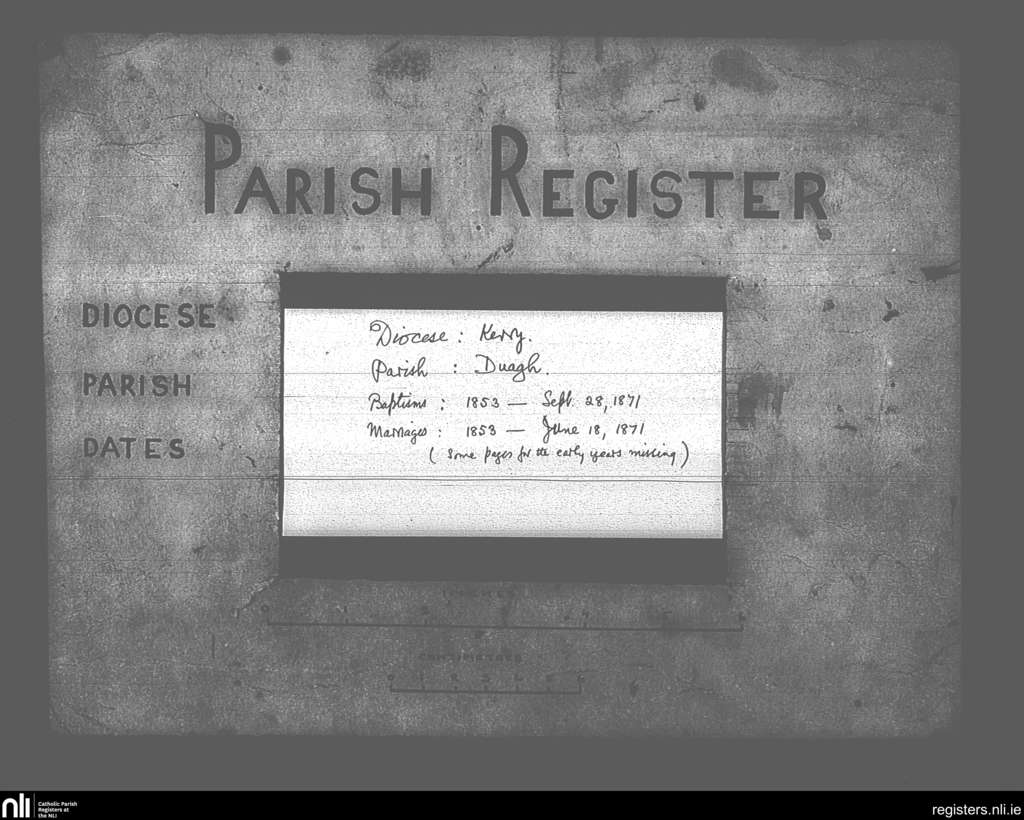 PARISH REGISTER
DIOCESE
PARISH
DATES
Diocese : Kerry.
Parish : Duagh.
Baptisms : 1853 — Sept. 28, 1871
Marriages : 1853 — June 18, 1871
( Some pages for the early years missing )
INCHES
CENTIMETRES
nli
Catholic Parish
Registers at
the NLI
registers.nli.ie